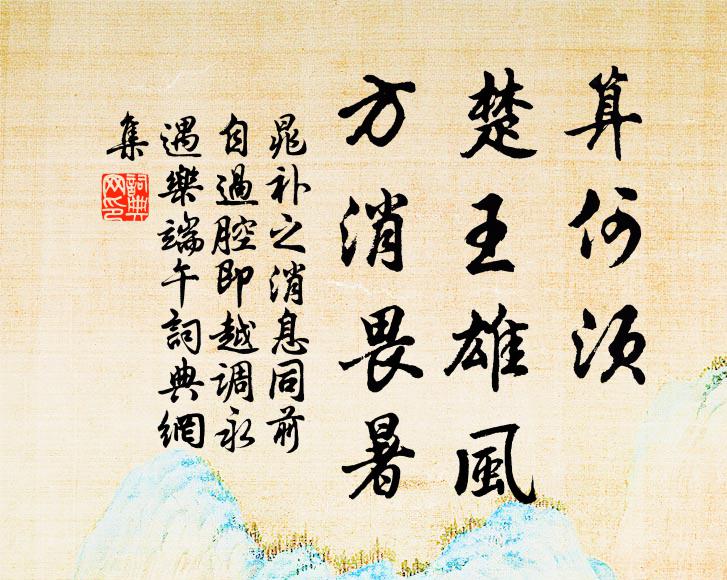 算何须
楚王雄風
方消畏暑
晁补之消息同前
自過腔即越調永
遇樂端午詞典網
集
詞典
网印